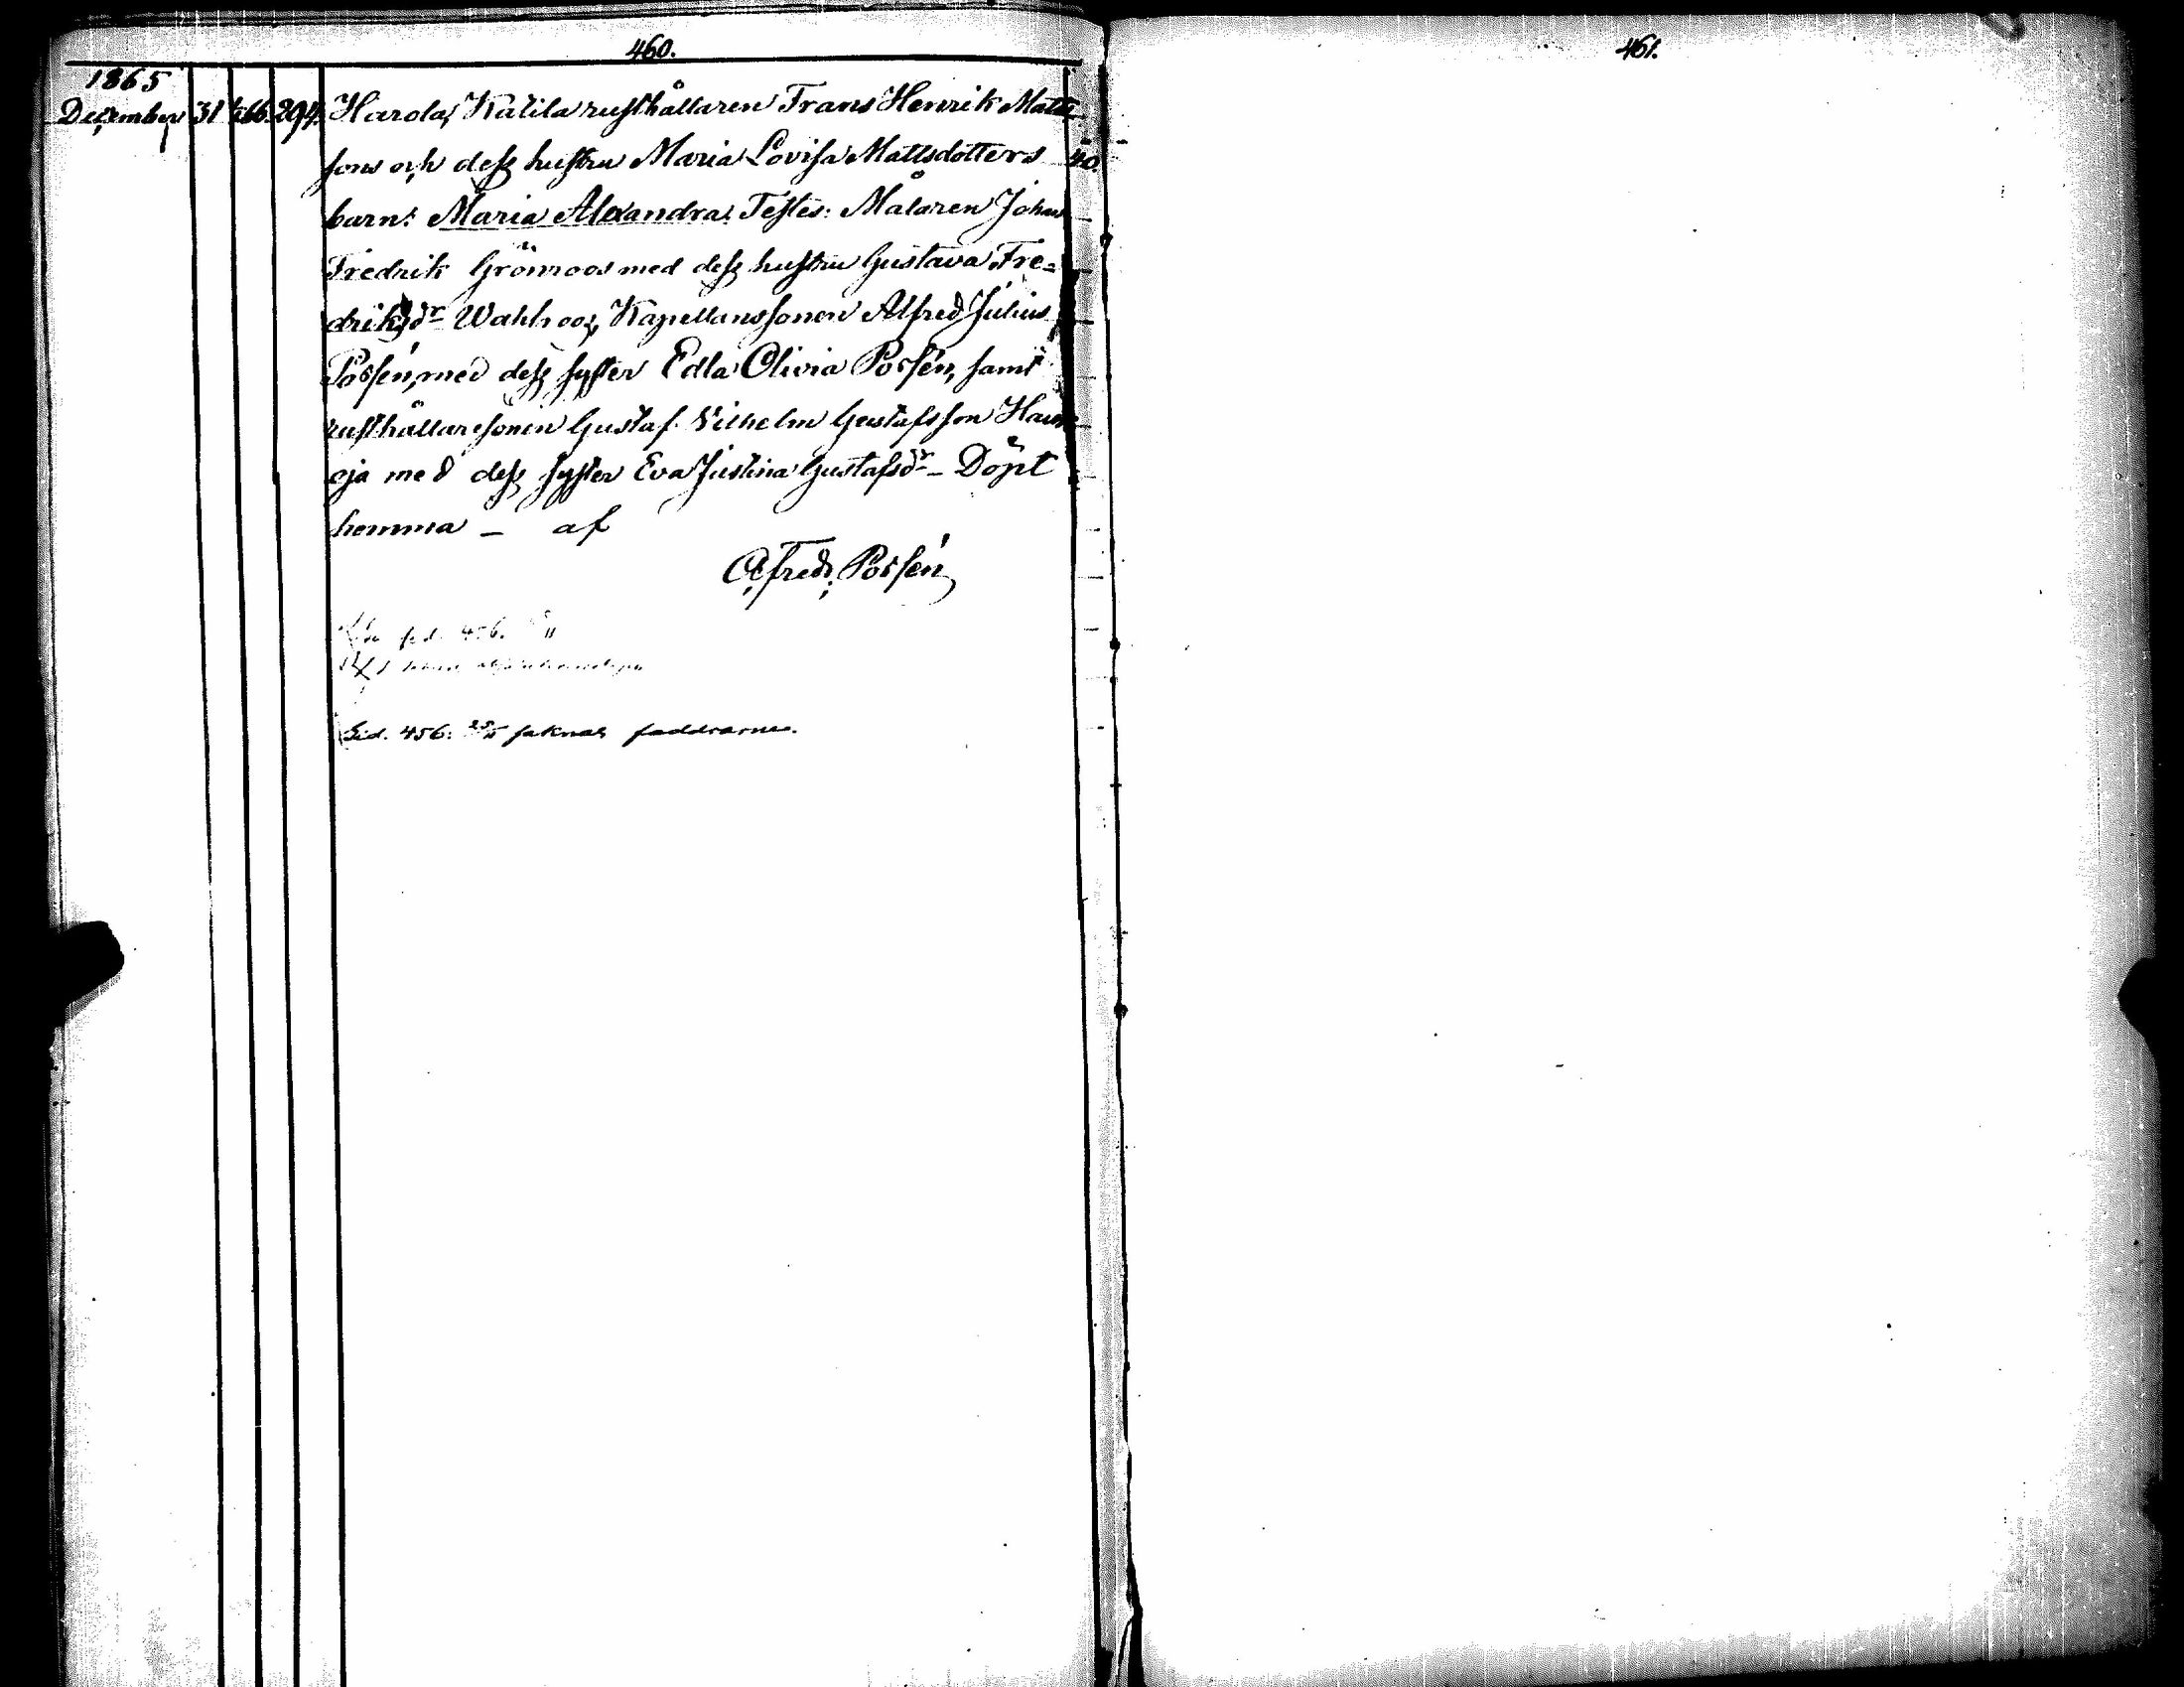 460.
1865
December 31 1/1 66. 294. Harola, Katila rusthållaren Frans Henrik Matts
sons och dess hustru Maria Lovisa Mattsdotters 40.
barn: Maria Alexandra. Testes: Målaren Johan
Fredrik Grönroos med dess hustru Gustava Fre=
driksdr Wahlroos, Kapellanssonen Alfred Julius
Possén, med dess syster Edla Olivia Possén, samt
rusthållaresonen Gustaf Vilhelm Gustafsson
oja med dess syster Eva Justina Gustafsdr – Döpt
hemma – af
Alfred Possén
456.
Sid. 456: saknas faddrarne.
461.